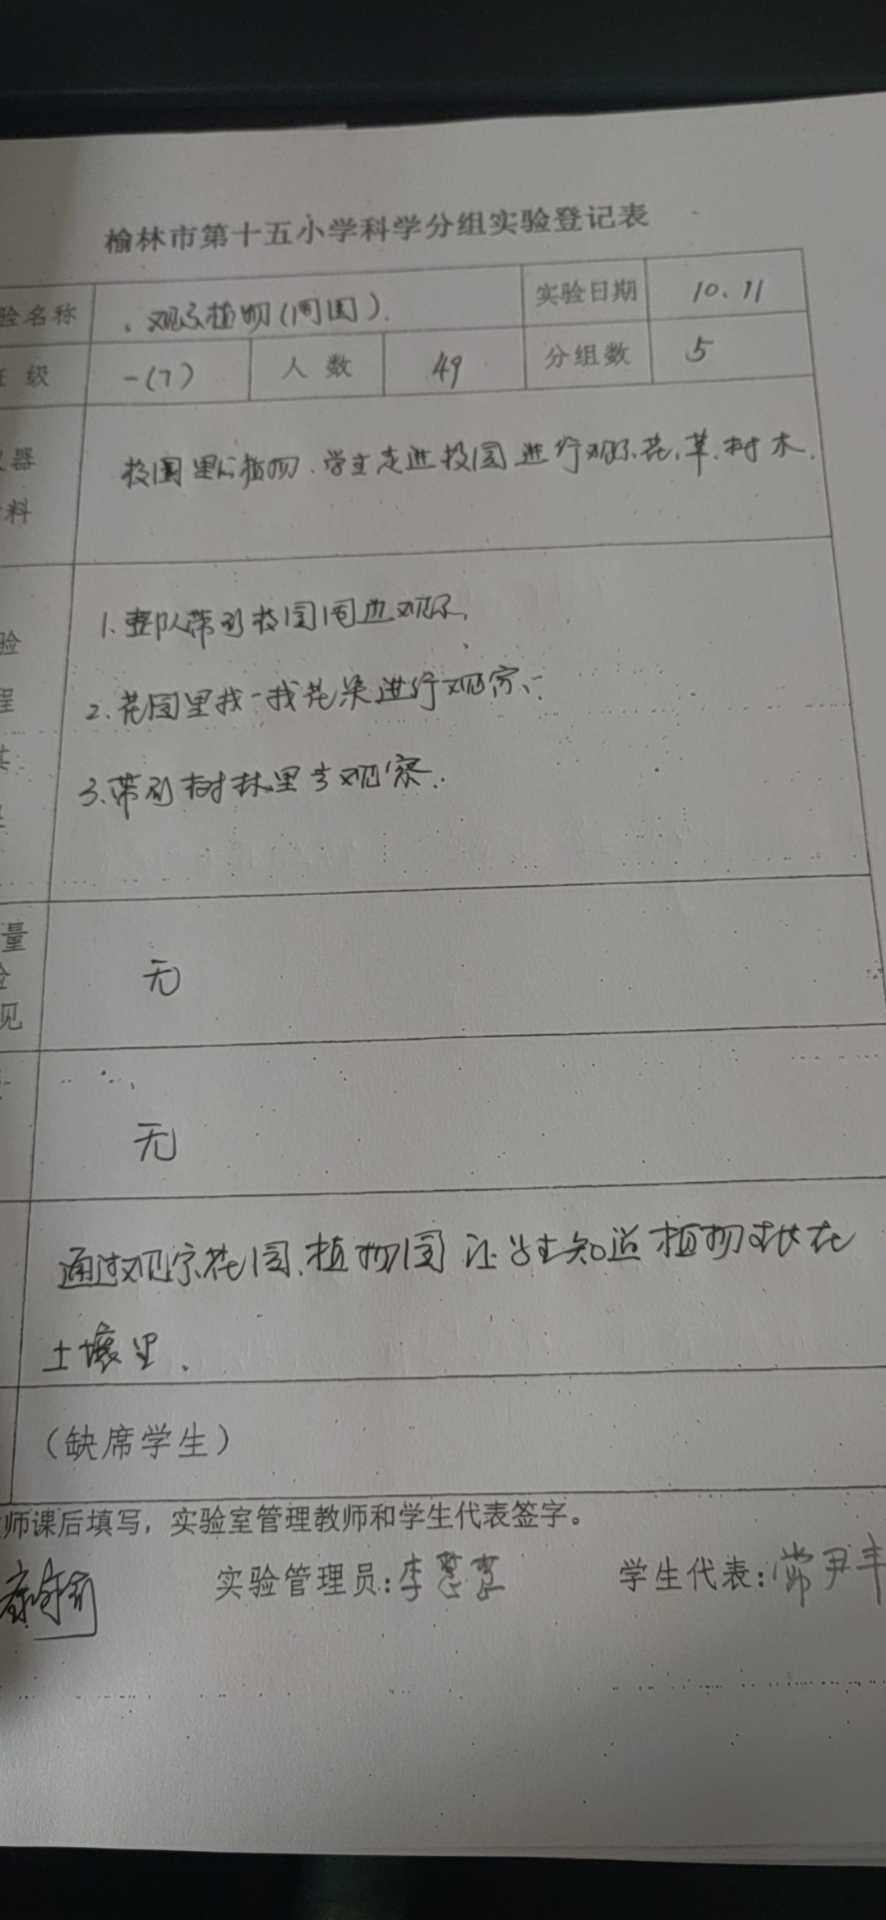 榆林市第十五小学科学分组实验登记表
验名称 观察植物(周围). 实验日期 10.11
级 一(7) 人数 49 分组数 5
器 校园里的植物.学生走进校园进行观察花,草.树木.
料
1.整队带到校园周边观察.
验
2.花园里找一找花朵进行观察.
程
3.带到树林里去观察.
量
无
见
无
通过观察花园.植物园让学生知道植物生长在
土壤里.
(缺席学生)
师课后填写，实验室管理教师和学生代表签字。
实验管理员:李慧慧 学生代表:常尹丰